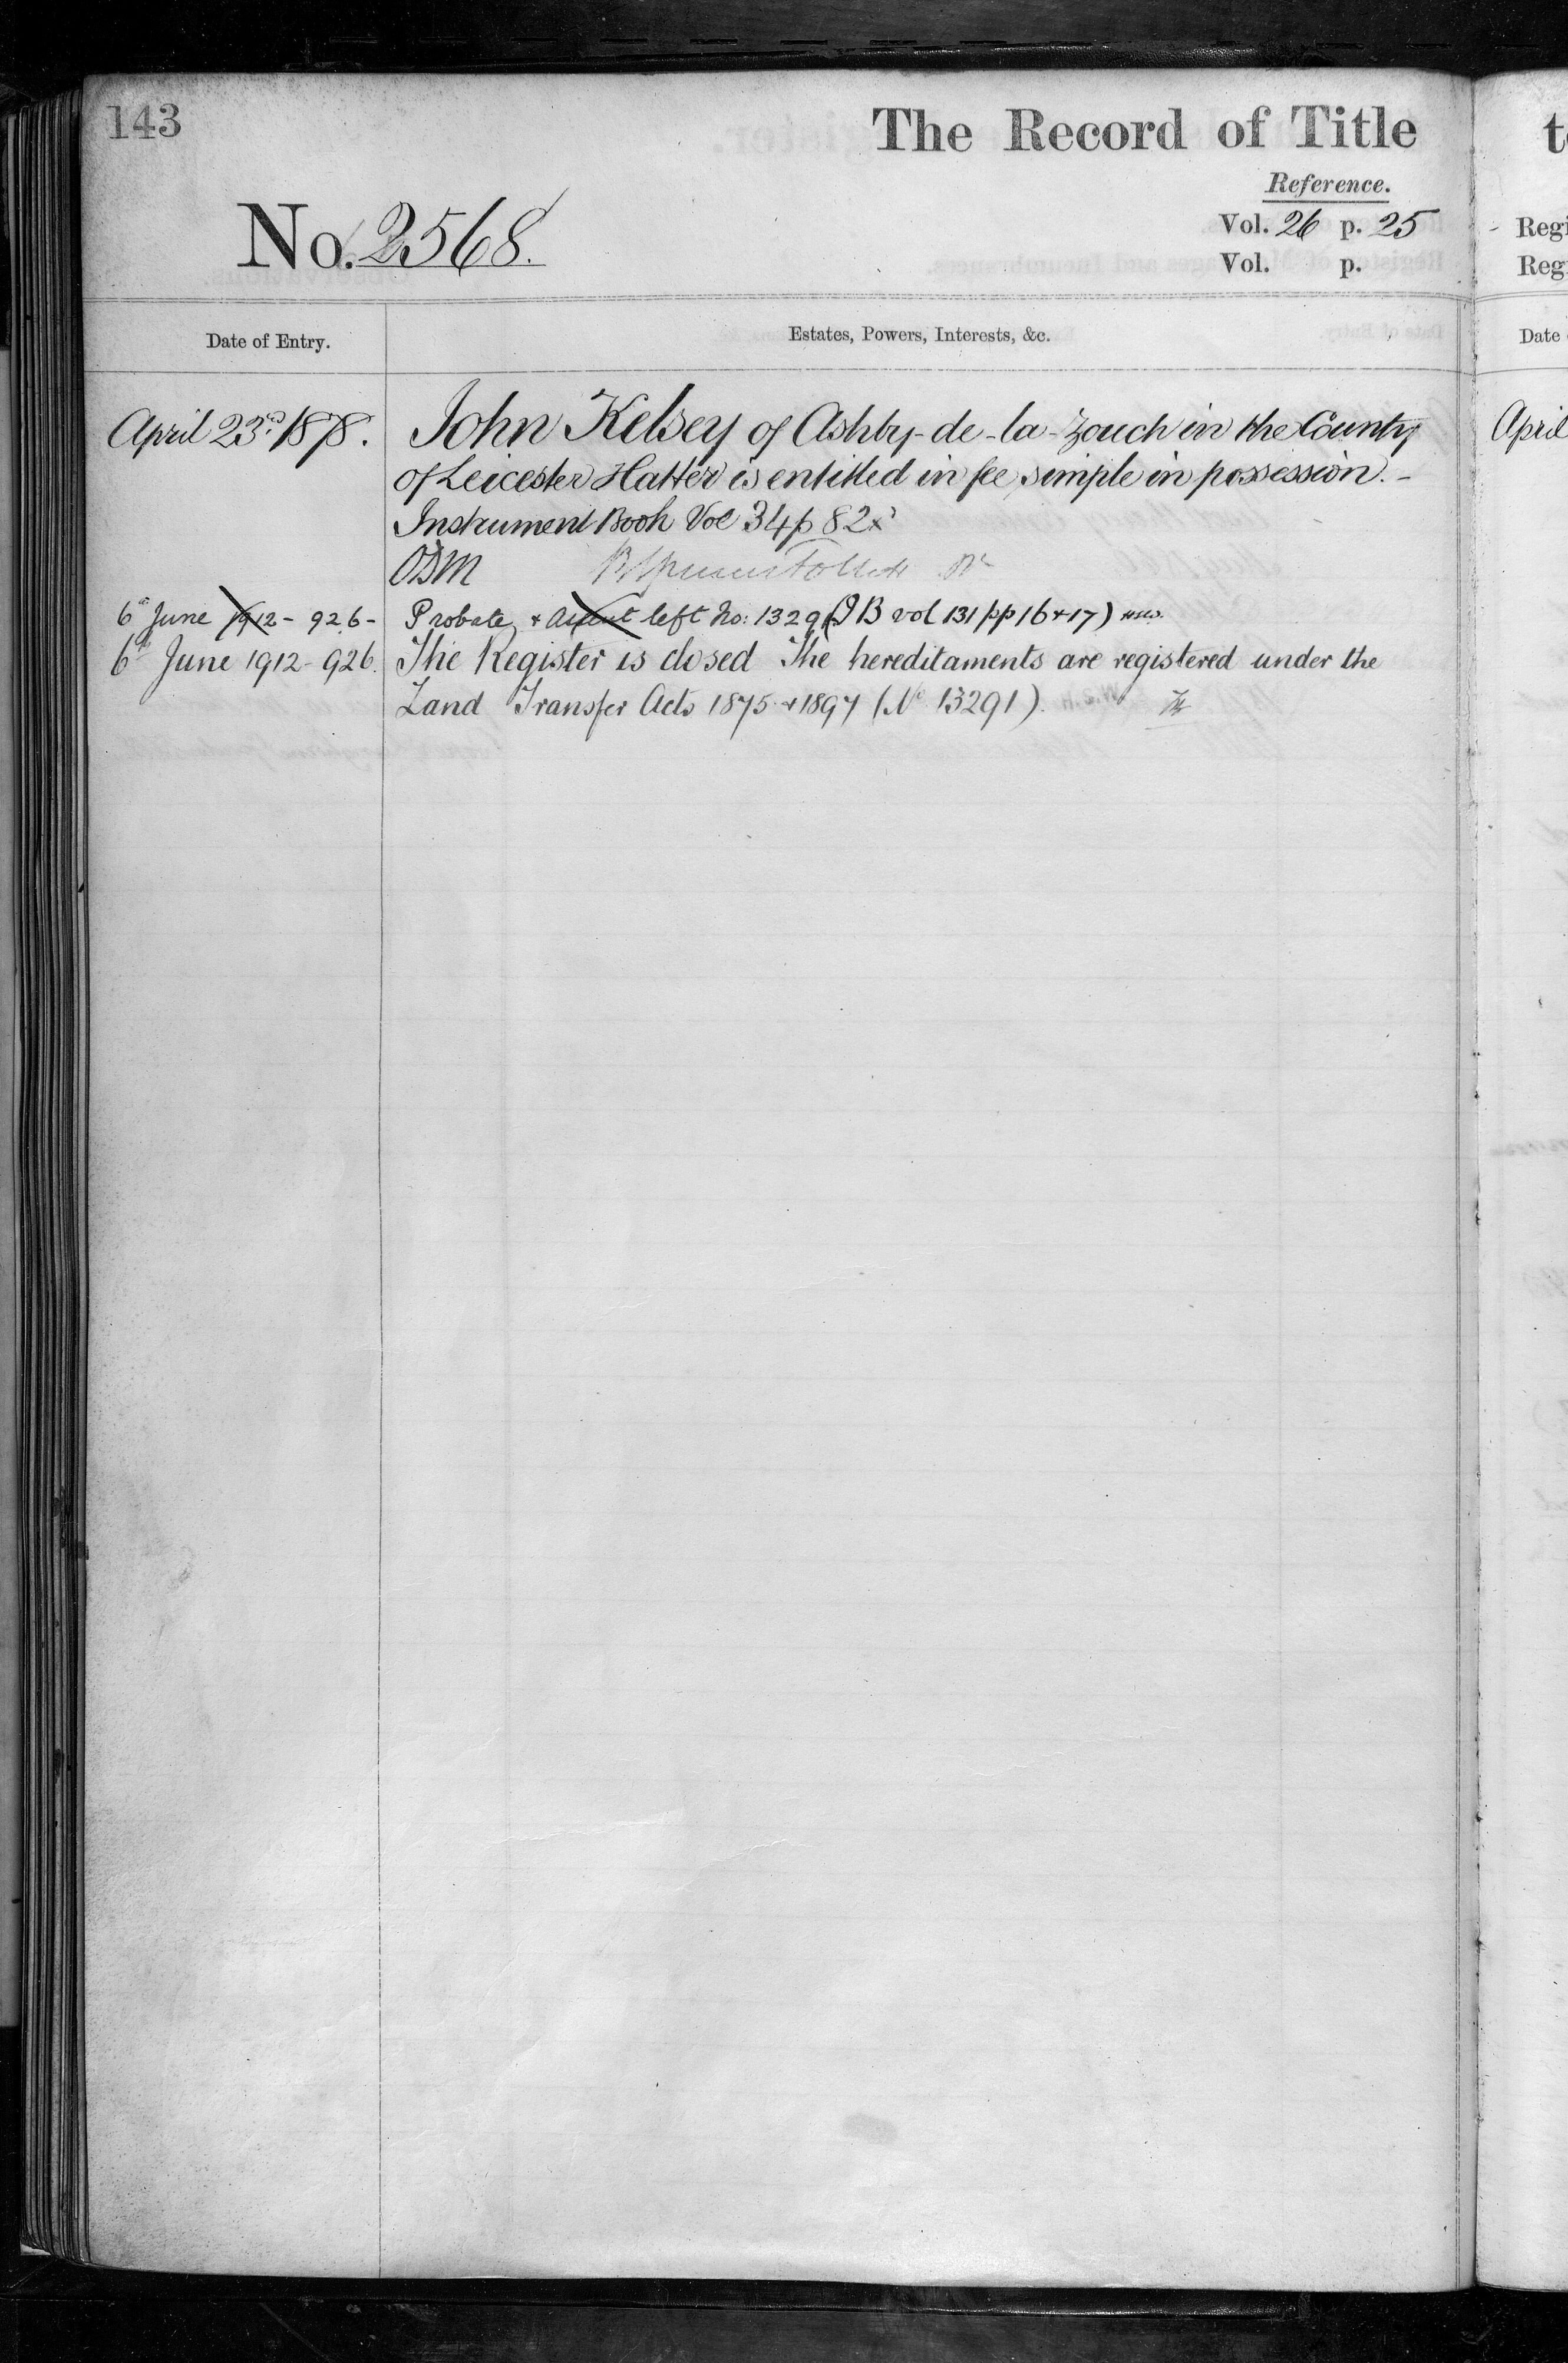 143
The Record of Title
Reference.
Vol. 26 p. 25
Vol. p.
No. 2568.
Date of Entry.
Estates, Powers, Interests, &c.
April 23rd 1878.
John Kelsey of Ashby-de-la-Zouch in the County
of Leicester Hatter is entitled in fee simple in possession. -
Instrument Book Vol 34 p 82
ODM
6th June 1912 - 926 -
Probate & Assent left No: 13291 (IB vol 131 pp 16 + 17)
6th June 1912 - 926.
The Register is closed The hereditaments are registered under the
Land Transfer Acts 1875 & 1897 (No 13291).
Regi
Reg
Date
April